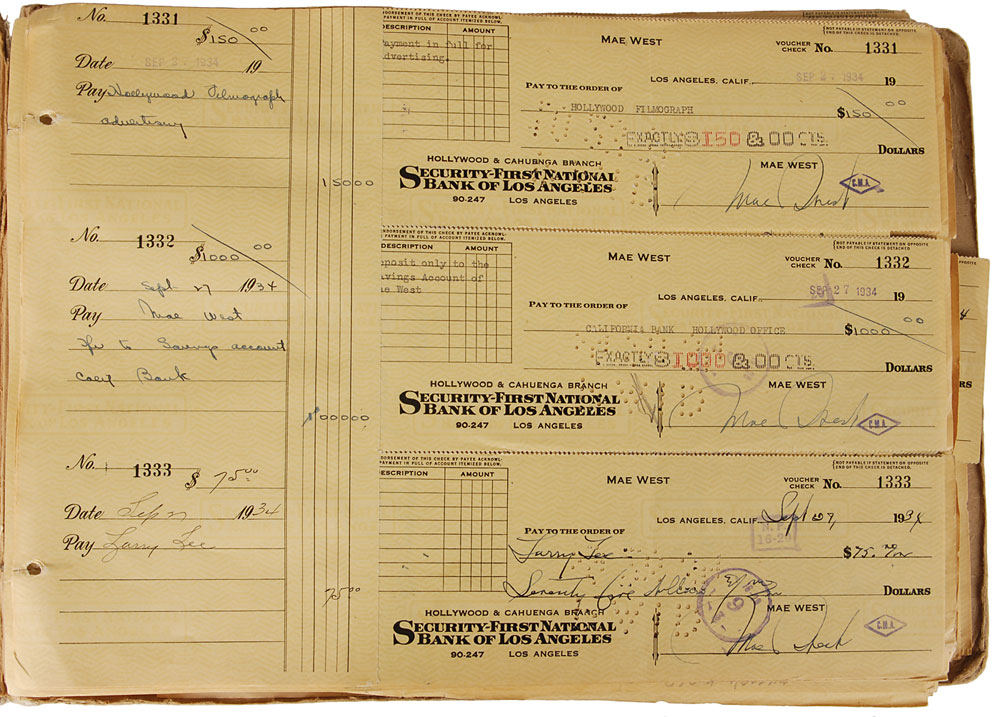 No. 1331
$150 00
Date SEP 27 1934 19
Pay Hollywood Filmograph
advertising
15000
No. 1332
$1000 00
Date Sept 27 1934
Pay Mae West
Tfr to Savings account
Calif Bank
100000
No. 1333 $ 75.00
Date Sep 27 1934
Pay Larry Lee
75 00
ENDORSEMENT OF THIS CHECK BY PAYEE ACKNOWL-
PAYMENT IN FULL OF ACCOUNT ITEMIZED BELOW.
DESCRIPTION AMOUNT
ayment in full for
dvertising.
NOT PAYABLE IF STATEMENT ON OPPOSITE
END OF THIS CHECK IS DETACHED.
MAE WEST
VOUCHER CHECK No. 1331
LOS ANGELES, CALIF. SEP 27 1934 19
PAY TO THE ORDER OF
HOLLYWOOD FILMOGRAPH $150 00
EXACTLY $150 & 00 CTS.
DOLLARS
HOLLYWOOD & CAHUENGA BRANCH
SECURITY-FIRST NATIONAL
BANK OF LOS ANGELES
90-247 LOS ANGELES
MAE WEST
Mae West
C.M.A.
ENDORSEMENT OF THIS CHECK BY PAYEE ACKNOWL-
PAYMENT IN FULL OF ACCOUNT ITEMIZED BELOW.
DESCRIPTION AMOUNT
eposit only to the
avings Account of
ae West
NOT PAYABLE IF STATEMENT ON OPPOSITE
END OF THIS CHECK IS DETACHED
MAE WEST
VOUCHER CHECK No. 1332
LOS ANGELES, CALIF. SEP 27 1934 19
PAY TO THE ORDER OF
CALIFORNIA BANK HOLLYWOOD OFFICE $1000 00
EXACTLY $1000 & 00 CTS.
DOLLARS
HOLLYWOOD & CAHUENGA BRANCH
SECURITY-FIRST NATIONAL
BANK OF LOS ANGELES
90-247 LOS ANGELES
MAE WEST
Mae West
C.M.A.
ENDORSEMENT OF THIS CHECK BY PAYEE ACKNOWL-
PAYMENT IN FULL OF ACCOUNT ITEMIZED BELOW.
DESCRIPTION AMOUNT
NOT PAYABLE IF STATEMENT ON OPPOSITE
END OF THIS CHECK IS DETACHED.
MAE WEST
VOUCHER CHECK No. 1333
LOS ANGELES, CALIF. Sept 27, 1934
PAY TO THE ORDER OF
Larry Lee $75. no/00
Seventy Five Dollars no/00 DOLLARS
HOLLYWOOD & CAHUENGA BRANCH
SECURITY-FIRST NATIONAL
BANK OF LOS ANGELES
90-247 LOS ANGELES
MAE WEST
Mae West
C.M.A.